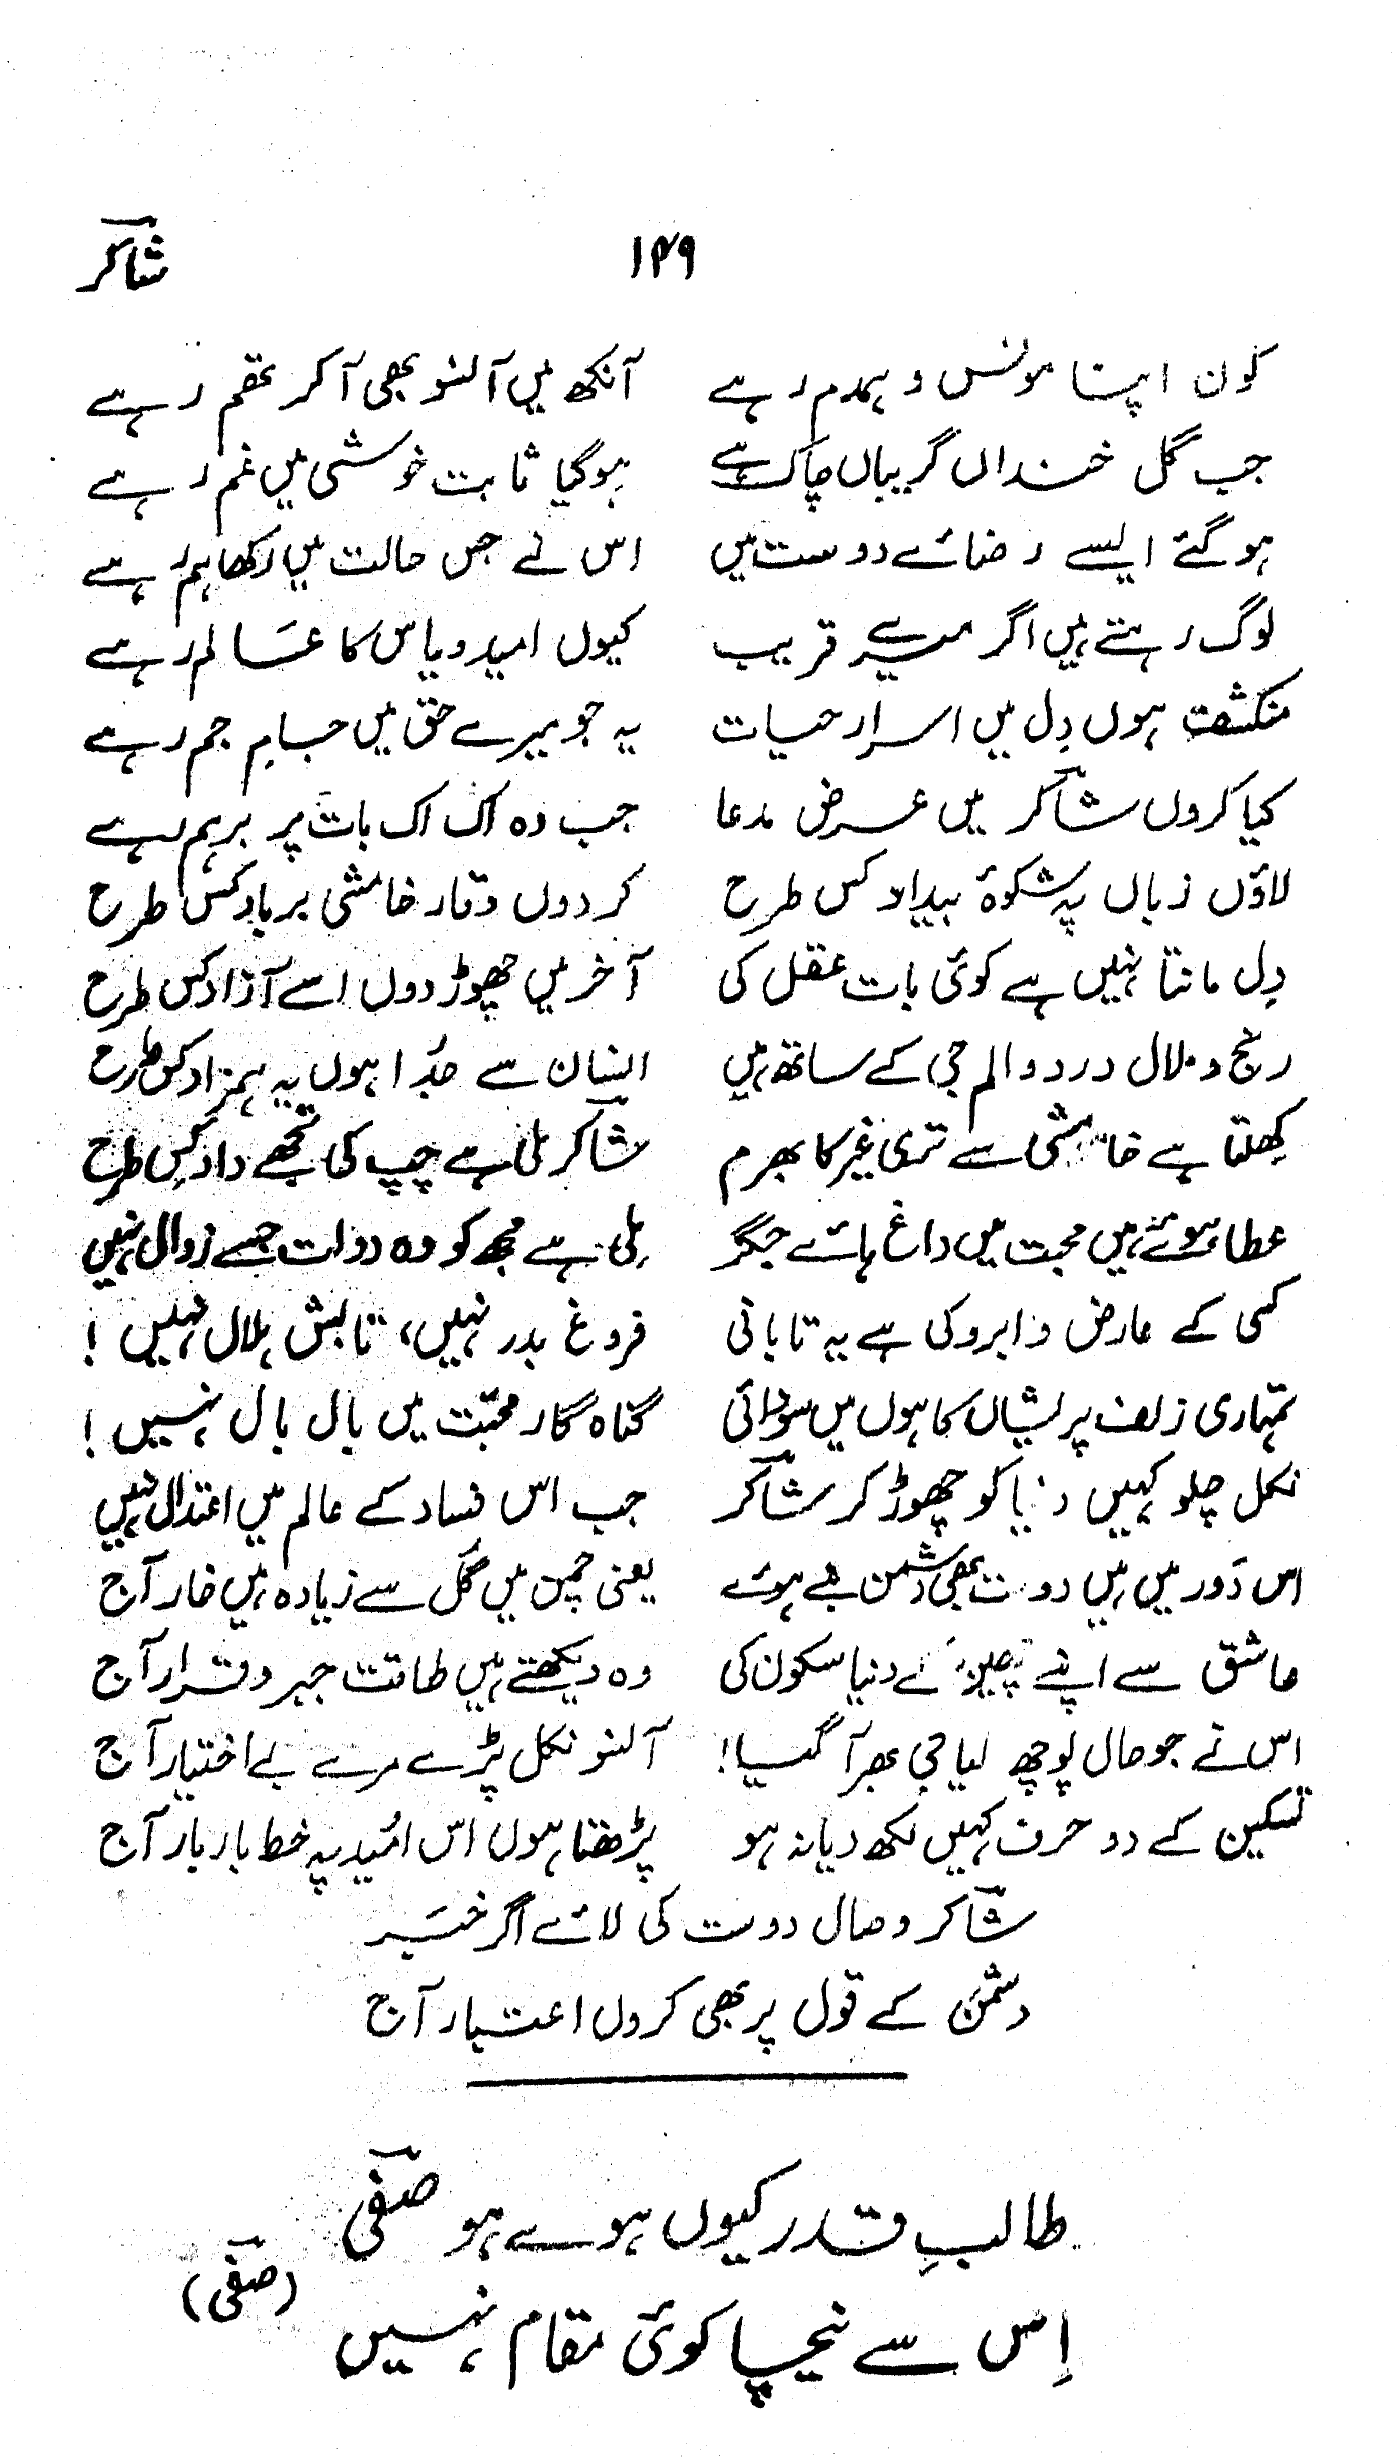 شاکر ۱۴۹
کون اپنا مونس و ہمدم رہے آنکھ میں آنسو بھی آکر تھم رہے
جب گل خنداں گریباں چاک ہے ہوگیا ثابت خوشی میں غم رہے
ہوگئے ایسے رضائے دوست میں اس نے جس حالت میں رکھا ہم رہے
لوگ رہتے ہیں اگر میرے قریب کیوں امید و یاس کا عالم رہے
منکشف ہوں دِل میں اسرار حیات یہ جو میرے حق میں جامِ جم رہے
کیا کروں شاکر میں عرض مدعا جب وہ اک اک بات پر برہم رہے
لاؤں زباں پہ شکوۂ بیداد کس طرح کردوں وقار خامشی برباد کس طرح
دِل مانتا نہیں ہے کوئی بات عقل کی آخر میں چھوڑ دوں اسے آزاد کس طرح
رنج و ملال درد و الم جی کے ساتھ ہیں انسان سے جُدا ہوں یہ ہمزاد کس طرح
کھلتا ہے خامشی سے تری غیر کا بھرم شاکر ملی ہے چپ کی تجھے داد کس طرح
عطا ہوئے ہیں محبت میں داغ ہائے جگر مِلی ہے مجھ کو وہ دولت جسے زوال نہیں
کسی کے عارض و ابرو کی ہے یہ تابانی فروغ بدر نہیں، تابش ہلال نہیں!
تمہاری زلف پریشاں کا ہوں میں سودائی گناہ گار محبّت میں بال بال نہیں!
نکل چلو کہیں دنیا کو چھوڑ کر شاکر جب اس فساد کے عالم میں اعتدال نہیں
اس دَور میں ہیں دوست بھی دشمن بنے ہوئے یعنی چمن میں گُل سے زیادہ ہیں خار آج
عاشق سے اپنے چھین کے دنیا سکون کی وہ دیکھتے ہیں طاقت جبر و قرار آج
اس نے جو حال پوچھ لیا جی بھر آگیا! آنسو نکل پڑے مرے بے اختیار آج
تسکین کے دو حرف کہیں لکھ دیا نہ ہو پڑھتا ہوں اس اُمید پہ خط بار بار آج
شاکر وصال دوست کی لائے اگر خبر
دشمن کے قول پر بھی کروں اعتبار آج
طالبِ قدر کیوں ہوے ہو صفی
اِس سے نیچا کوئی مقام نہیں (صفی)